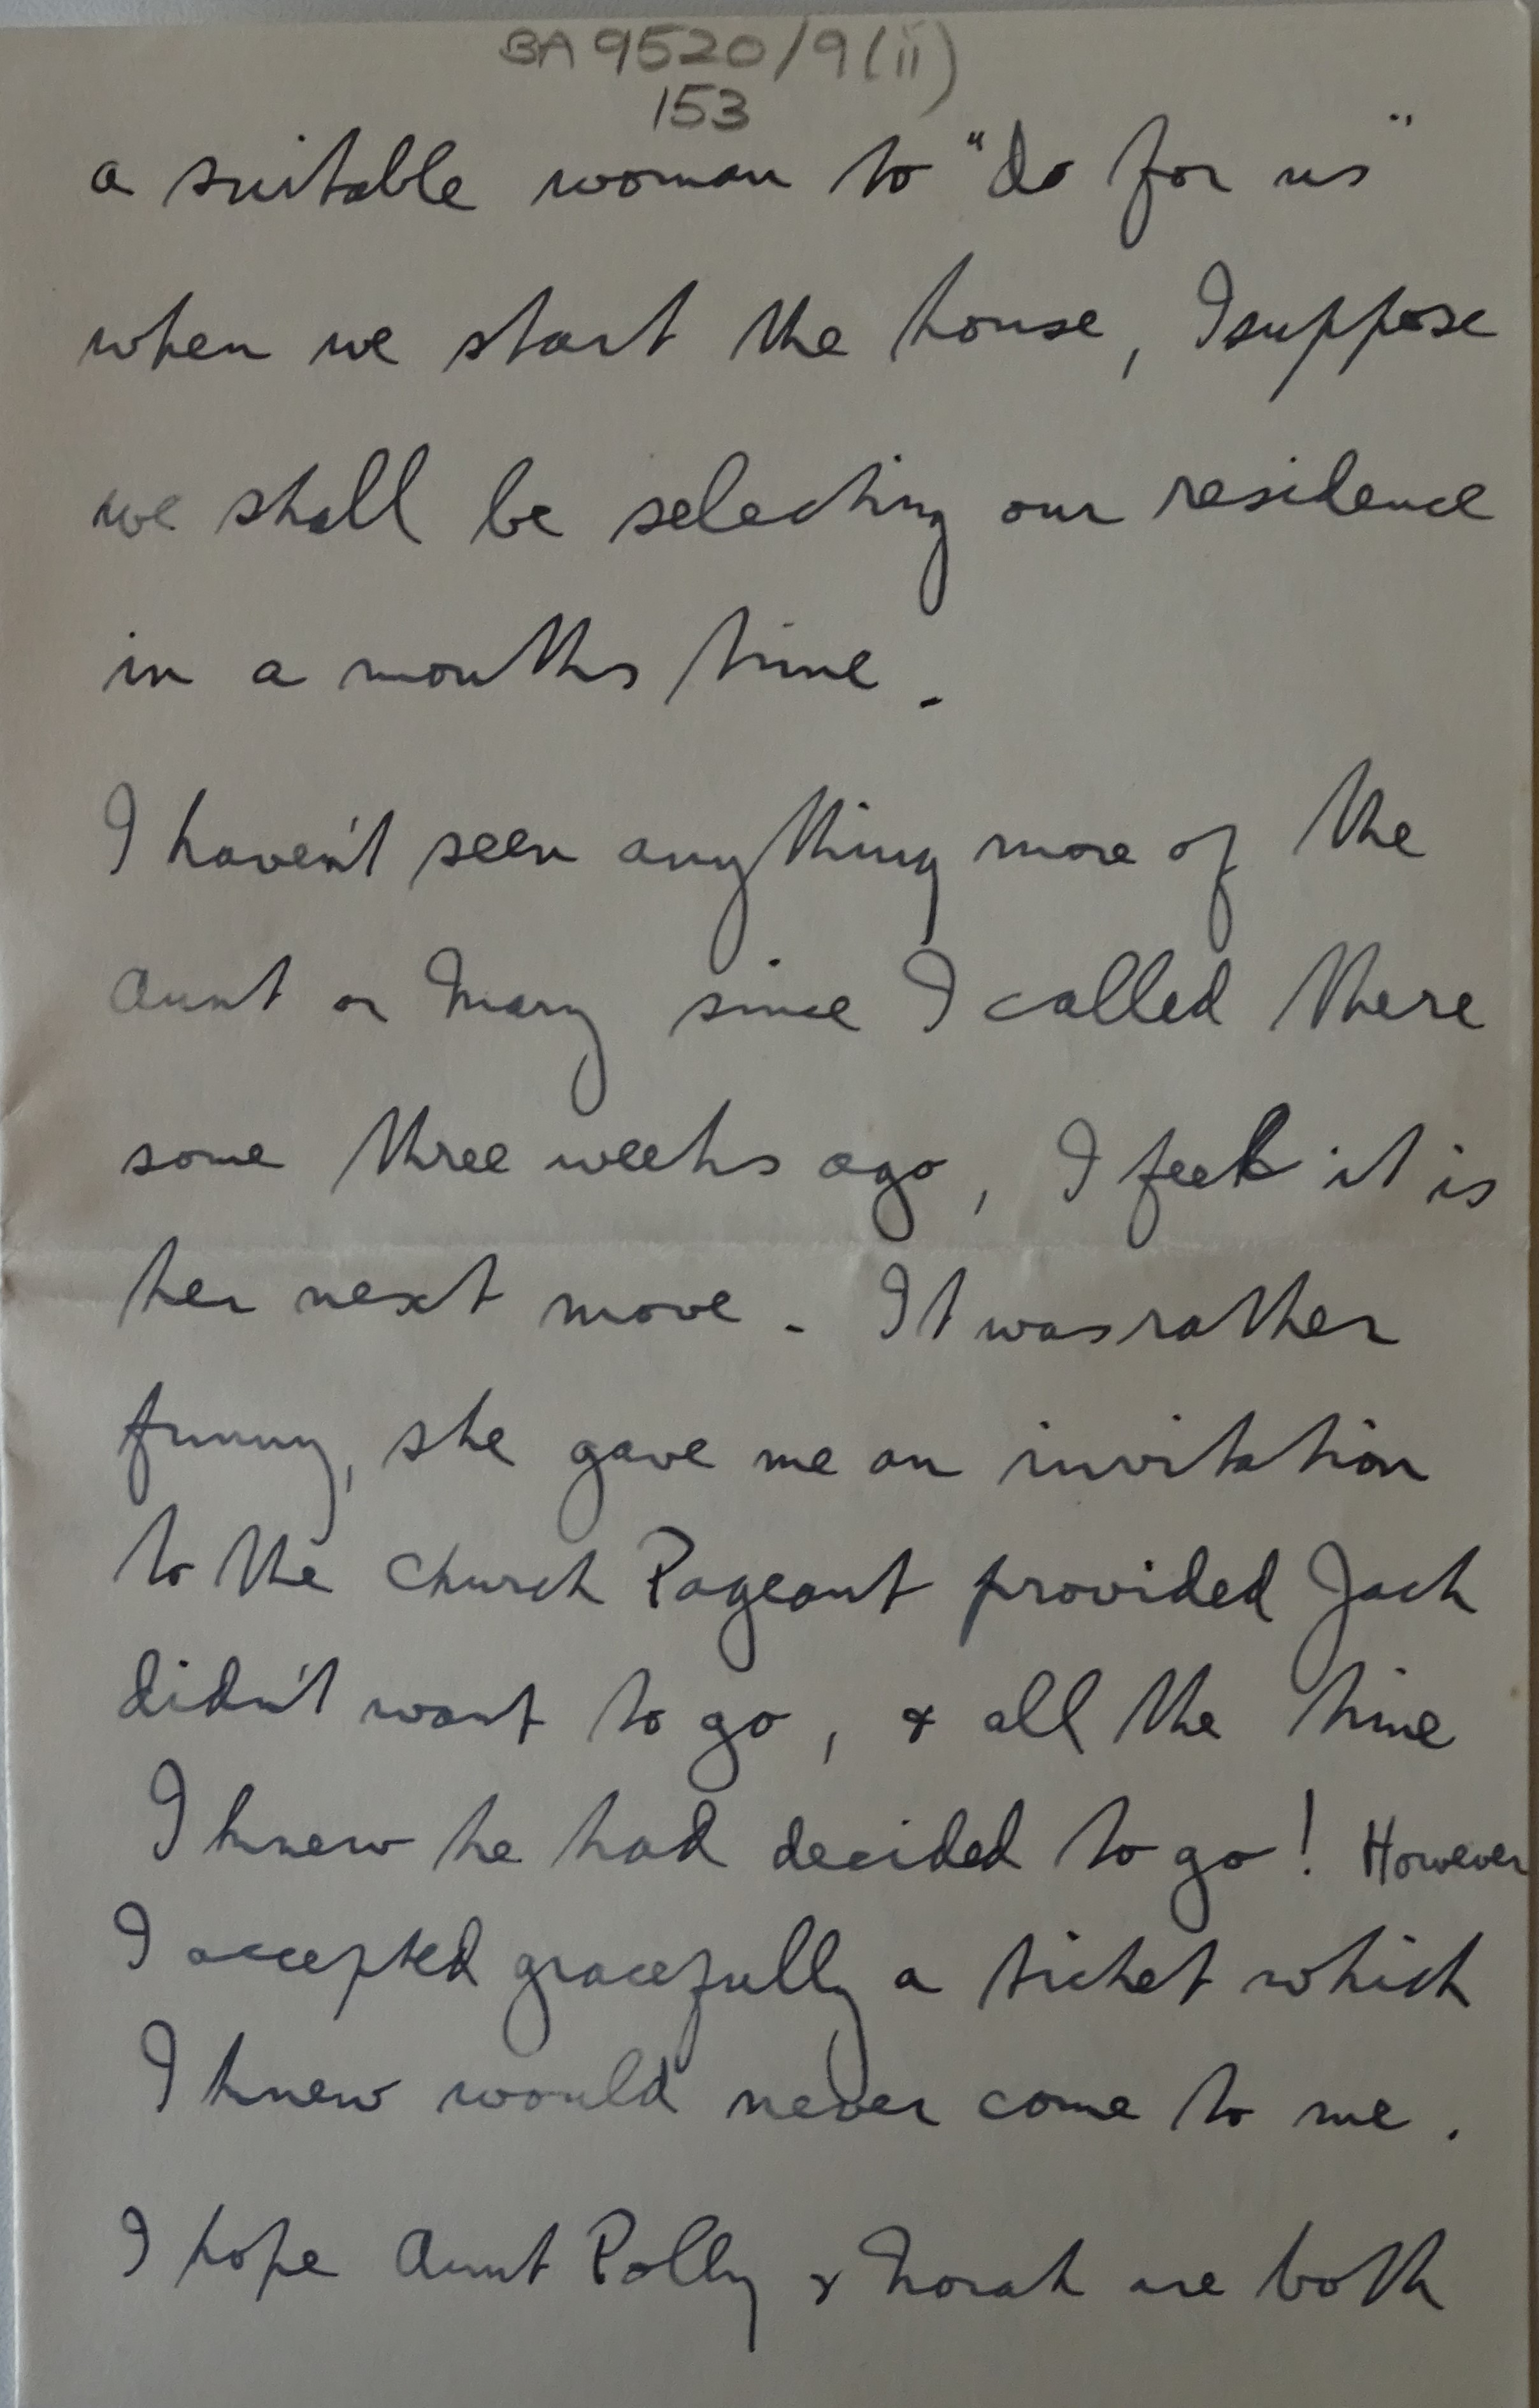 BA 9520/9(ii)
153
a suitable woman to "do for us"
when we start the house, I suppose
we shall be selecting our residence
in a months time.
I haven't seen anything more of the
Aunt or Mary since I called there
some three weeks ago, I feel it is
her next move. It was rather
funny, she gave me an invitation
to the Church Pageant provided Jack
didn't want to go, & all the time
I knew he had decided to go! However
I accepted gracefully a ticket which
I knew would never come to me.
I hope Aunt Polly & Norah are both